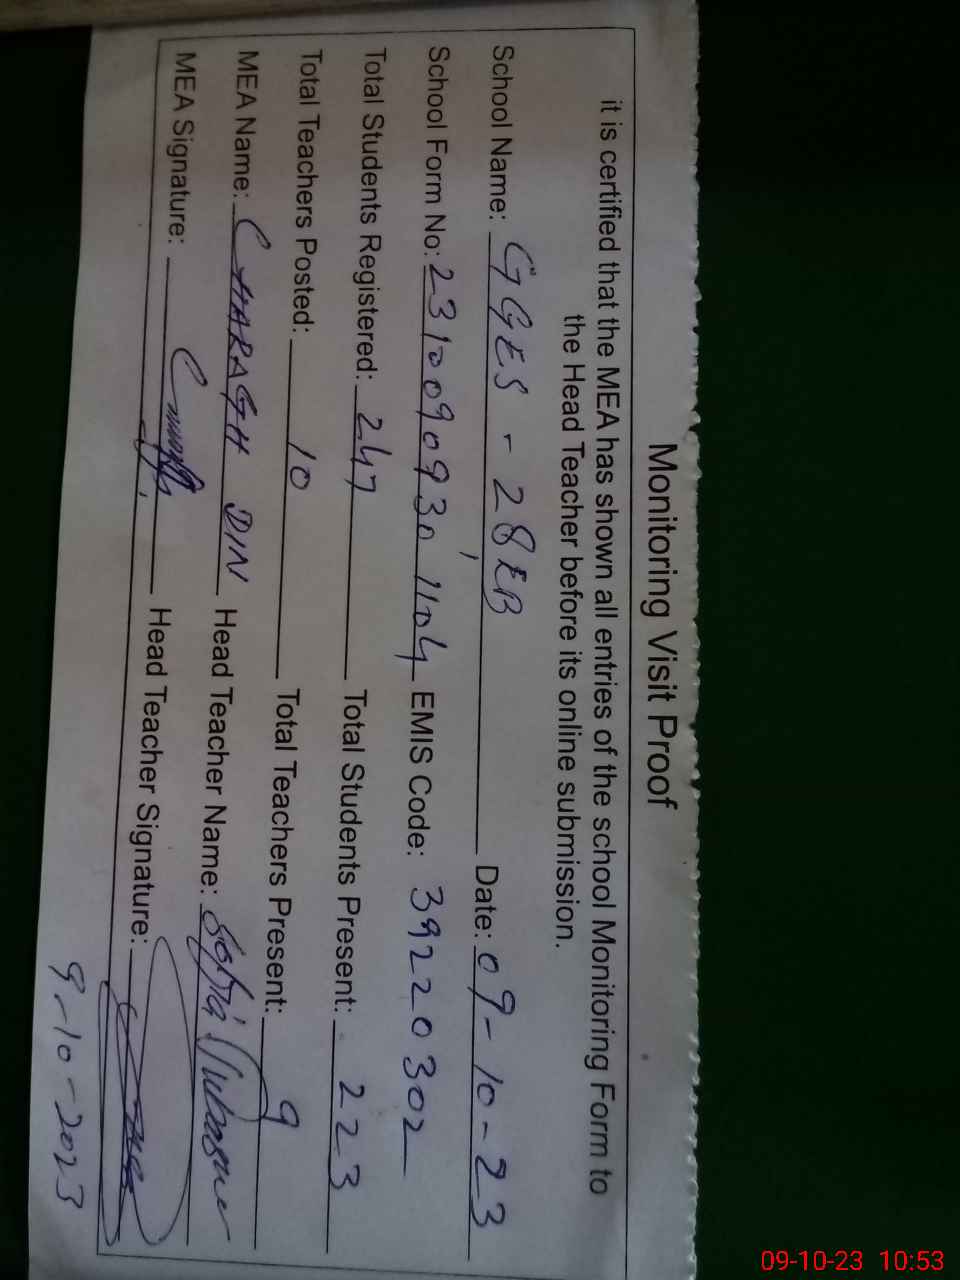 Monitoring Visit Proof
it is certified that the MEA has shown all entries of the school Monitoring Form to
the Head Teacher before its online submission.
School Name: GGES - 28EB Date: 09-10-23
School Form No: 23100909301104 EMIS Code: 39220302
Total Students Registered: 247 Total Students Present: 223
Total Teachers Posted: 10 Total Teachers Present: 9
MEA Name: CHARAGH DIN Head Teacher Name: Sofia
MEA Signature: Head Teacher Signature:
9-10-2023
09-10-23 10:53